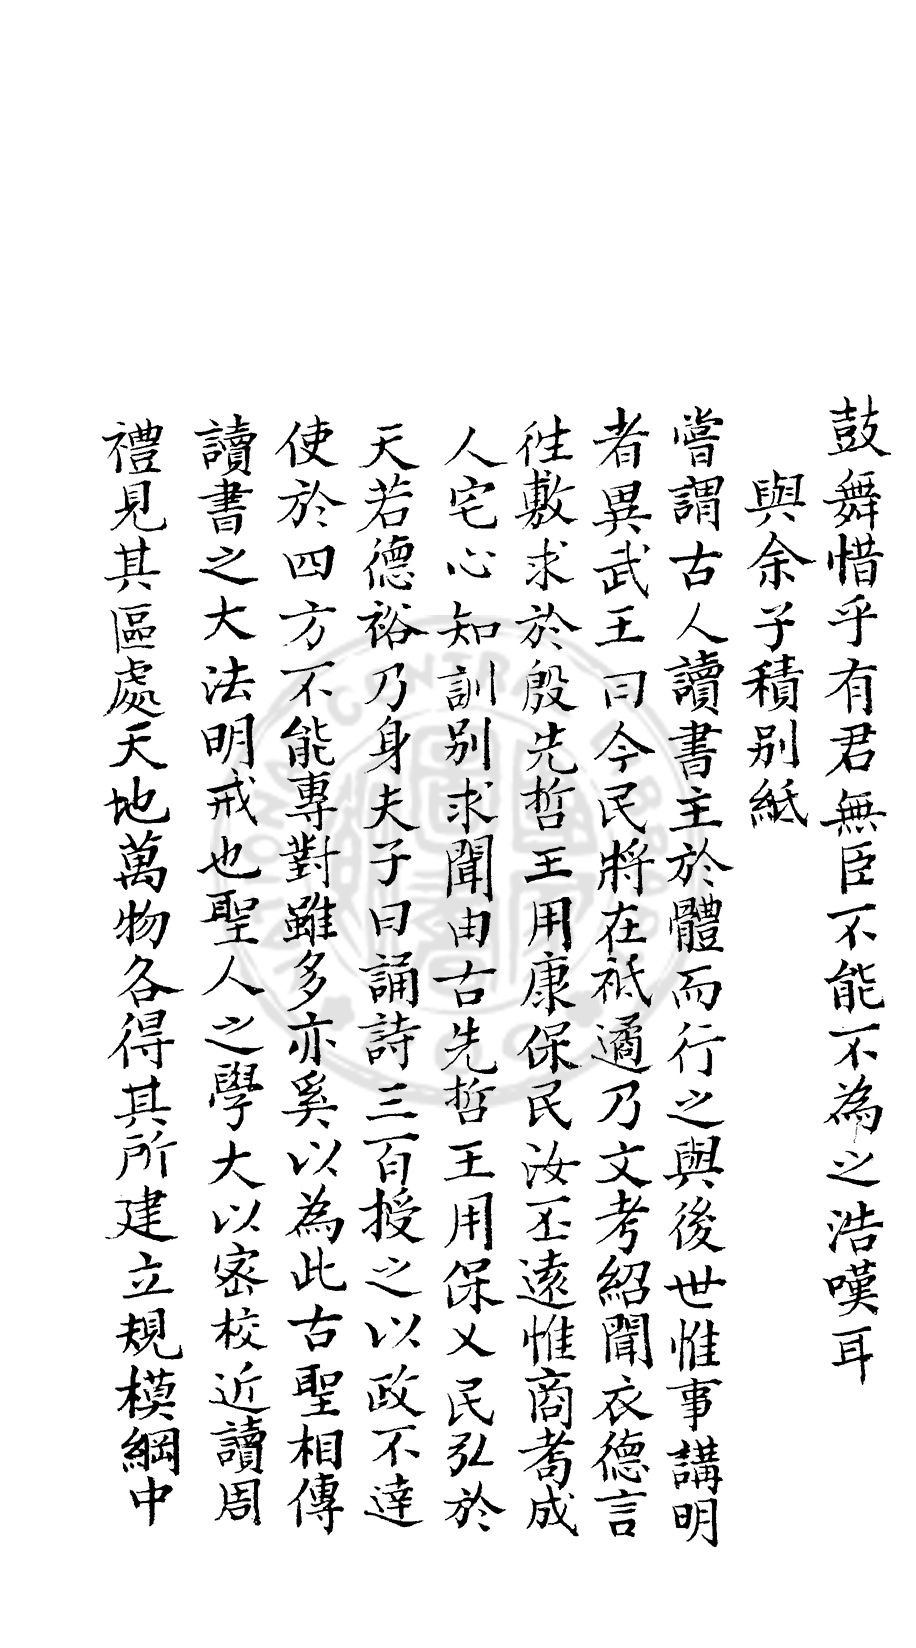 鼓舞惜乎有君無臣不能不為之浩嘆耳
與余子積别紙
嘗謂古人讀書主於體而行之與後世惟事講明
者異武王曰今民將在祗遹乃文考紹聞衣德言
徃敷求於殷先哲王用康保民汝丕遠惟商耇成
人宅心知訓别求聞由古先哲王用保乂民弘於
天若德裕乃身夫子曰誦詩三百授之以政不達
使於四方不能專對雖多亦奚以為此古聖相傳
讀書之大法明戒也聖人之學大以密校近讀周
禮見其區處天地萬物各得其所建立規模綱中